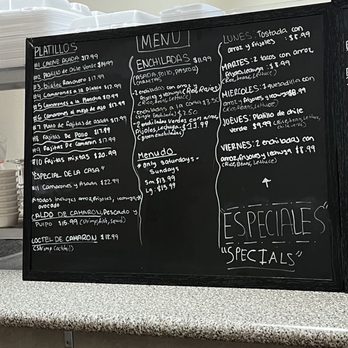 MENU
PLATILLOS
#1 CARNE ASADA $17.99
#2 Platillo de Chile Verde $14.99
#3 Bistec Ranchero $17.99
#4 Camarones a la Diabla $17.99
#5 Camarones a la Plancha
#6 Camarones al mojo de Ajo $17.99
#7 Plato de Fajitas de asada $17.99
#8 Fajitas De Pollo $17.99
#9 Fajitas De Camaron $17.99
#10 Fajitas mixtas $20.99
"ESPECIAL DE LA CASA"
#11 Camarones y Asada $22.99
+todos incluyen arroz, frijoles, ensalada,
avocado
CALDO DE CAMARON, Pescado y
Pulpo $18.99 (shrimp, fish,
COCTEL DE CAMARON $18.99
(Shrimp Coctel)
ENCHILADAS $11.99
(ASADA, pollo, Pastor)
CARNITAS
-2 enchiladas con arroz y
(Rice, Beans, Lettuce)
enchiladas a la carta $3.50
2 enchiladas Verdes con arroz,
frijoles, lechuga $13.99
green enchiladas
Menudo
Only Saturdays -
Sundays
Sm $13.99
Lg $15.99
LUNES: Tostada con
arroz y frijoles $8.99
MARTES: 2 tacos con arroz,
frijoles, lechuga $8.99
(Rice, beans, lettuce)
MIERCOLES: 1 quesadilla con
arroz, frijoles y lechuga
(Rice, beans, lettuce)
JUEVES: Platillo de chile
verde $9.99 (Rice, beans, lettuce,
VIERNES: 2 enchiladas con
arroz, frijoles y lechuga $8.99
(Rice, Beans, lettuce)
ESPECIALES"
"SPECIALS"